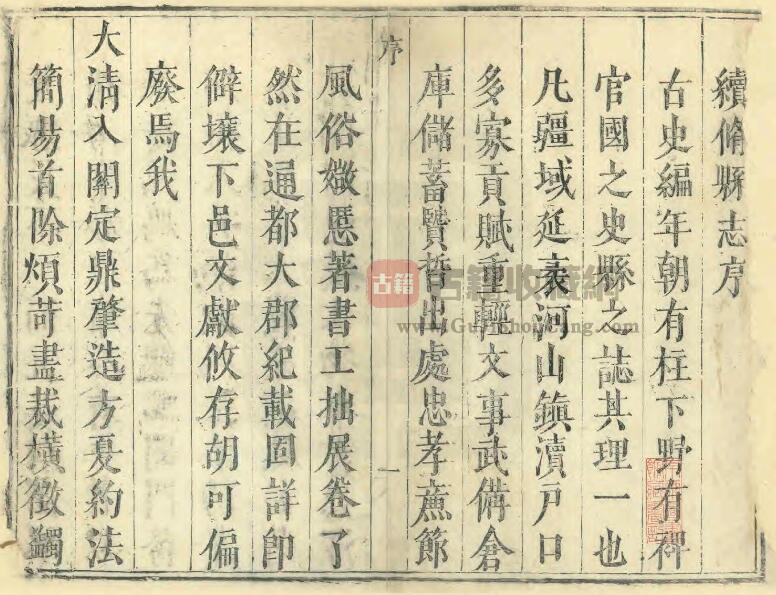 續脩縣志序
古史編年朝有柱下野有稗
官國之史縣之誌其理一也
凡疆域延袤河山鎮瀆戸口
多寡貢賦重輕文事武備倉
庫儲蓄賢哲出處忠孝亷節
序
一
風俗媺慝著書工拙展卷了
然在通都大郡紀載固詳卽
僻壤下邑文獻攸存胡可偏
廢焉我
大清入關定鼎肇造方夏約法
簡易首除煩苛盡裁橫徵蠲
古籍
古籍收藏網
www.GuJiShouCang.com